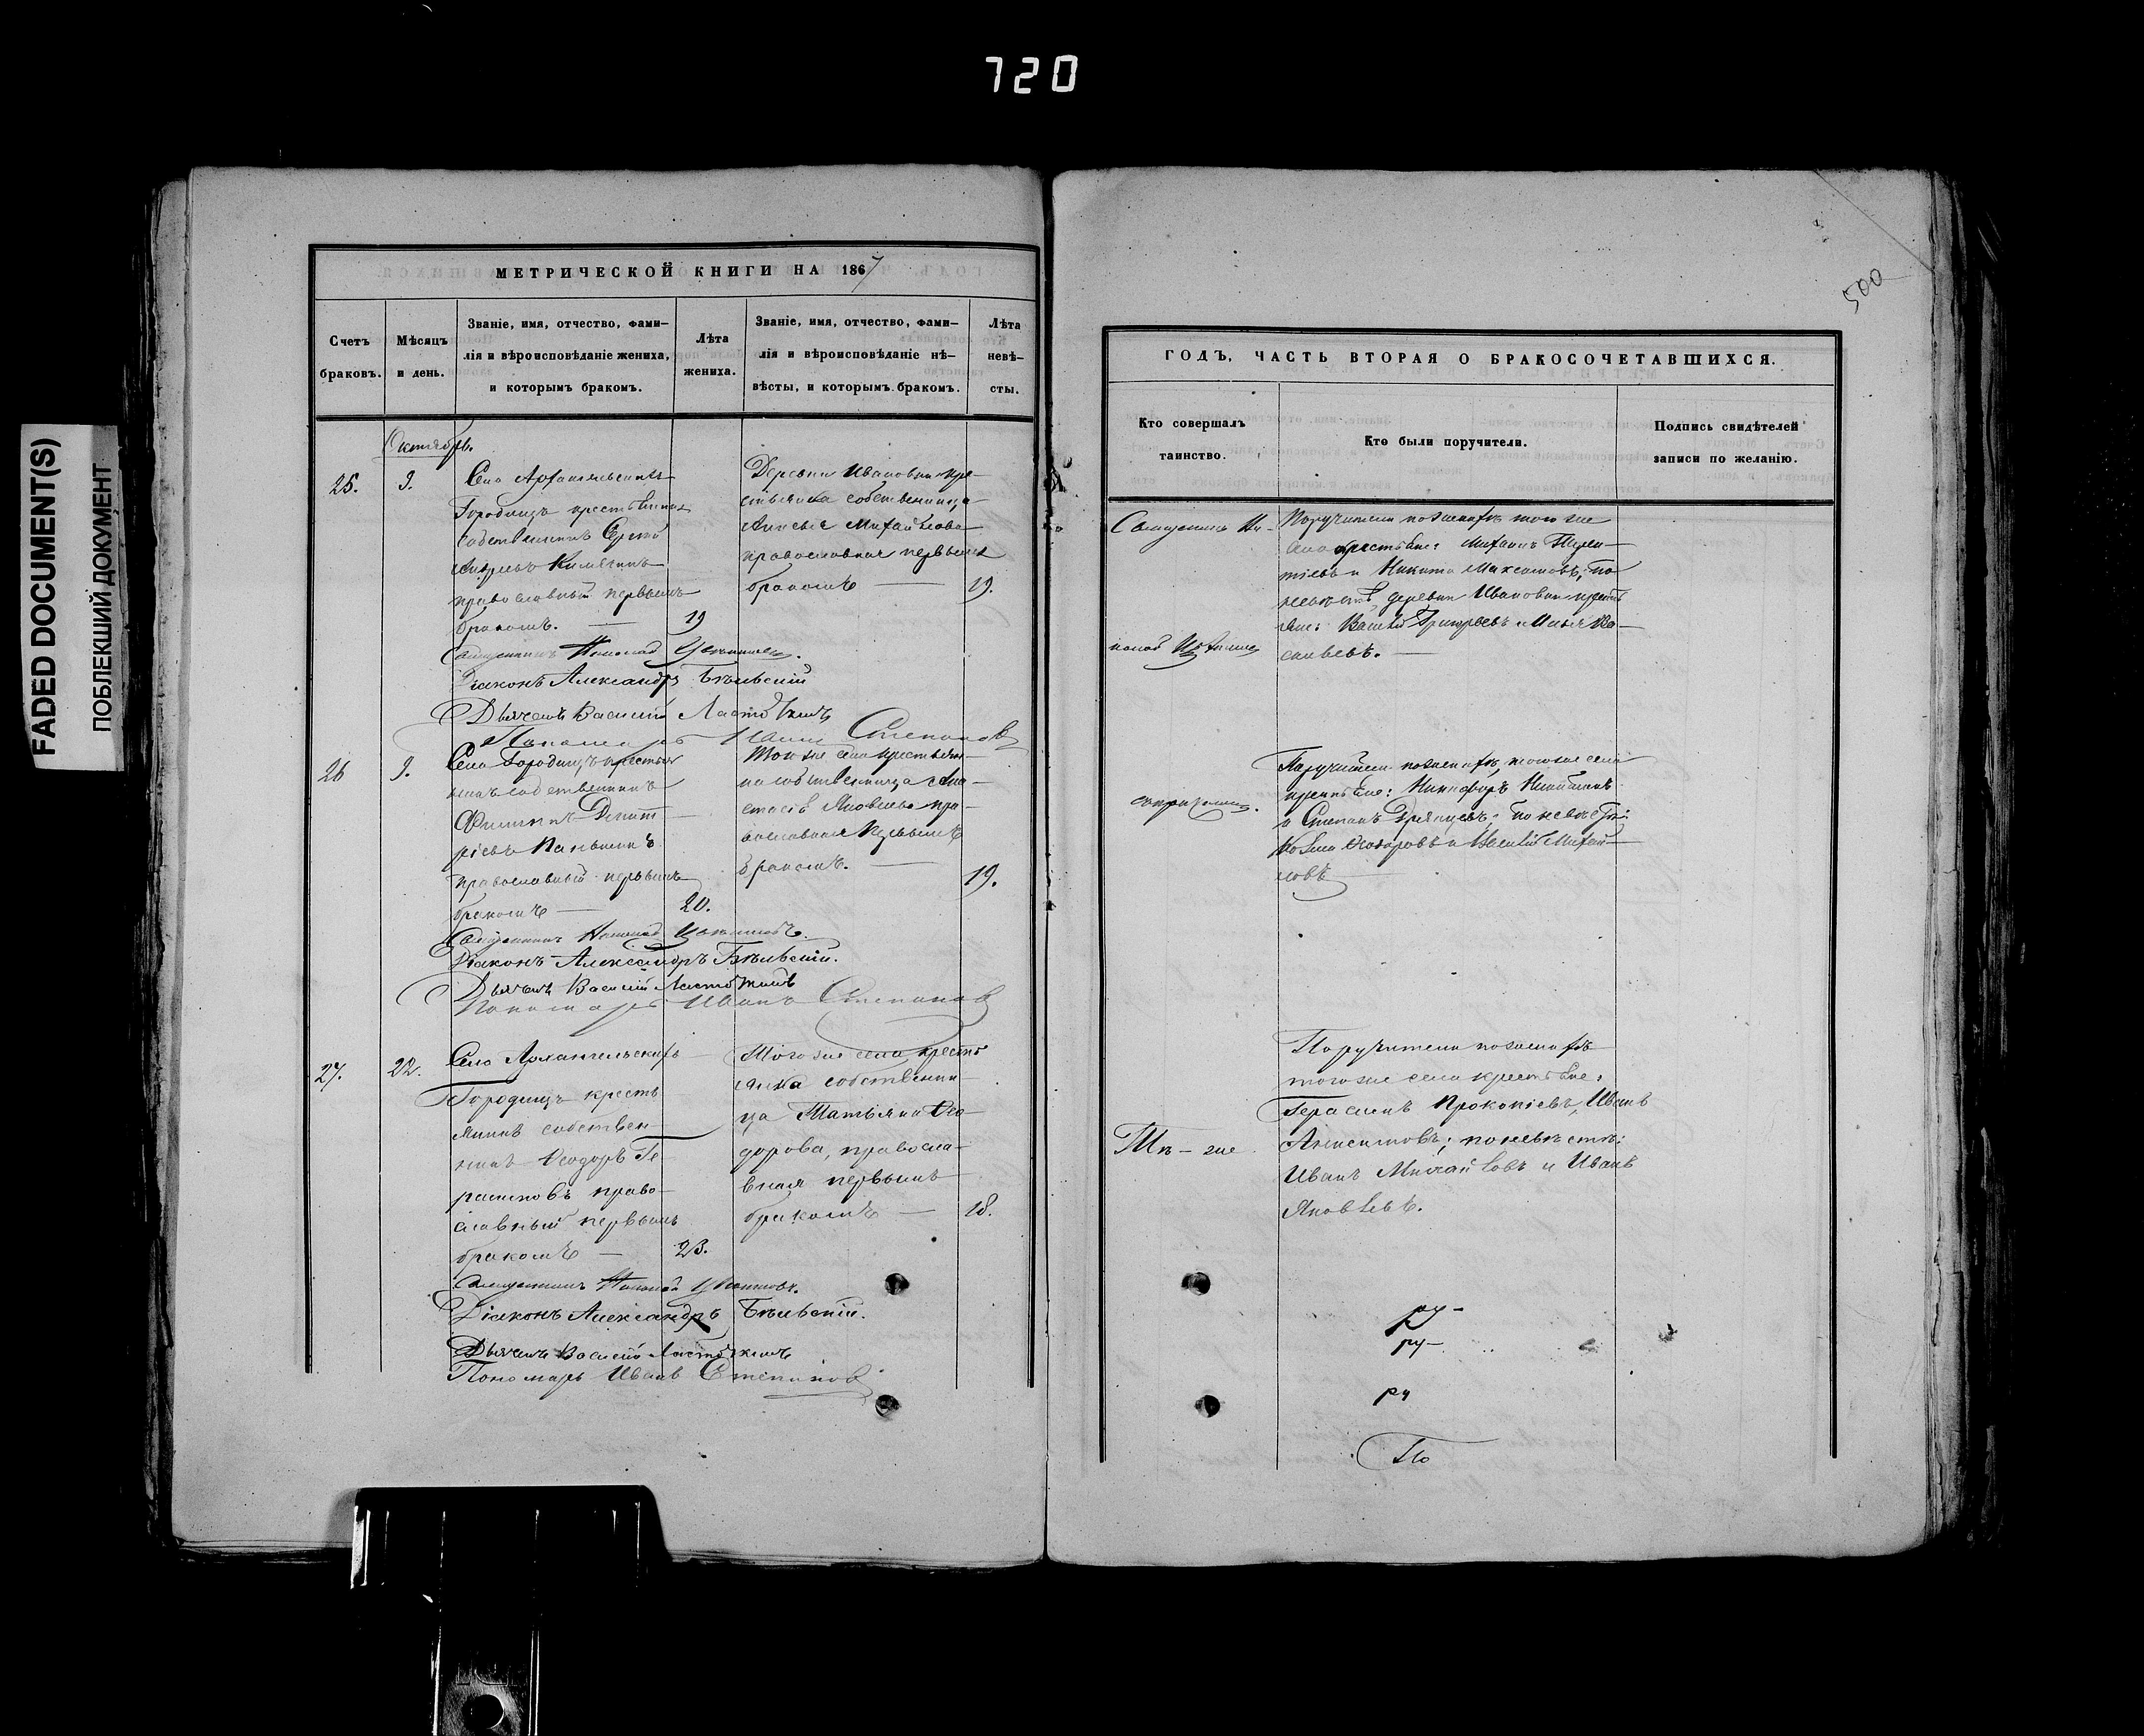 720
FADED DOCUMENT(S)
ПОБЛЕКШИЙ ДОКУМЕНТ
МЕТРИЧЕСКОЙ КНИГИ НА 1867
Счетъ
браковъ.
Мѣсяцъ
и день.
Званіе, имя, отчество, фами-
лія и вѣроисповѣданіе жениха,
и которымъ бракомъ.
Лѣта
жениха.
Званіе, имя, отчество, фами-
лія и вѣроисповѣданіе нѣ-
вѣсты, и которымъ бракомъ.
Лѣта
невѣ-
сты.
Октябрь.
25.
9.
Села Архангельскихъ
Городищъ крестьянинъ
собственникъ Сергій
православный первымъ
бракомъ. —
19
Деревни Ивановки кре-
стьянка собственница
Михайлова
православная первымъ
бракомъ —
19.
Священникъ Николай
Діаконъ Александръ Бѣльскій
Дьячекъ Василій
Пономарь Иванъ Степановъ
26
9.
Села Городищъ крестья
нинъ собственникъ
Филиппъ Димит
ріевъ Паньшинъ
православный первымъ
бракомъ —
20.
Того же села крестьян-
ка собственница Ана-
стасія Яковлева пра-
вославная первымъ
бракомъ. —
19.
Священникъ Николай
Діаконъ Александръ Бѣльскій.
Дьячекъ Василій
Пономарь Иванъ Степановъ
27.
22.
Села Архангельскихъ
Городищъ кресть
янинъ собствен-
никъ Ѳеодоръ Ге-
расимовъ право-
славный первымъ
бракомъ —
23.
Того же села кресть
янка собственни-
ца Татьяна Ѳео-
дорова, правосла-
вная первымъ
бракомъ —
18.
Священникъ Николай
Діаконъ Александръ Бѣльскій.
Дьячекъ Василій
Пономарь Иванъ Степановъ
500
ГОДЪ, ЧАСТЬ ВТОРАЯ О БРАКОСОЧЕТАВШИХСЯ.
Кто совершалъ
таинство.
Кто были поручители.
Подпись свидѣтелей
записи по желанію.
Священникъ Ни-
колай
Поручители по женихѣ того же
села крестьяне: Михаилъ
и Никита Максимовъ; по
невѣстѣ деревни Ивановки кресть
яне: Василій Григорьевъ и Илья Ва-
сильевъ. —
Поручители по женихѣ, того же села
крестьяне: Никифоръ
и Степанъ по невѣстѣ:
Козьма и Василій Михай-
ловъ
Тѣ-же
Поручители по женихѣ
того же села крестьяне:
Герасимъ Прокопіевъ, Иванъ
по невѣстѣ:
Иванъ Михайловъ и Иванъ
Яковлевъ.
ру-
ру-
ру
По